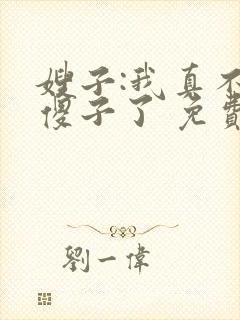 嫂子:我真不
傻子了 免費
劉一偉